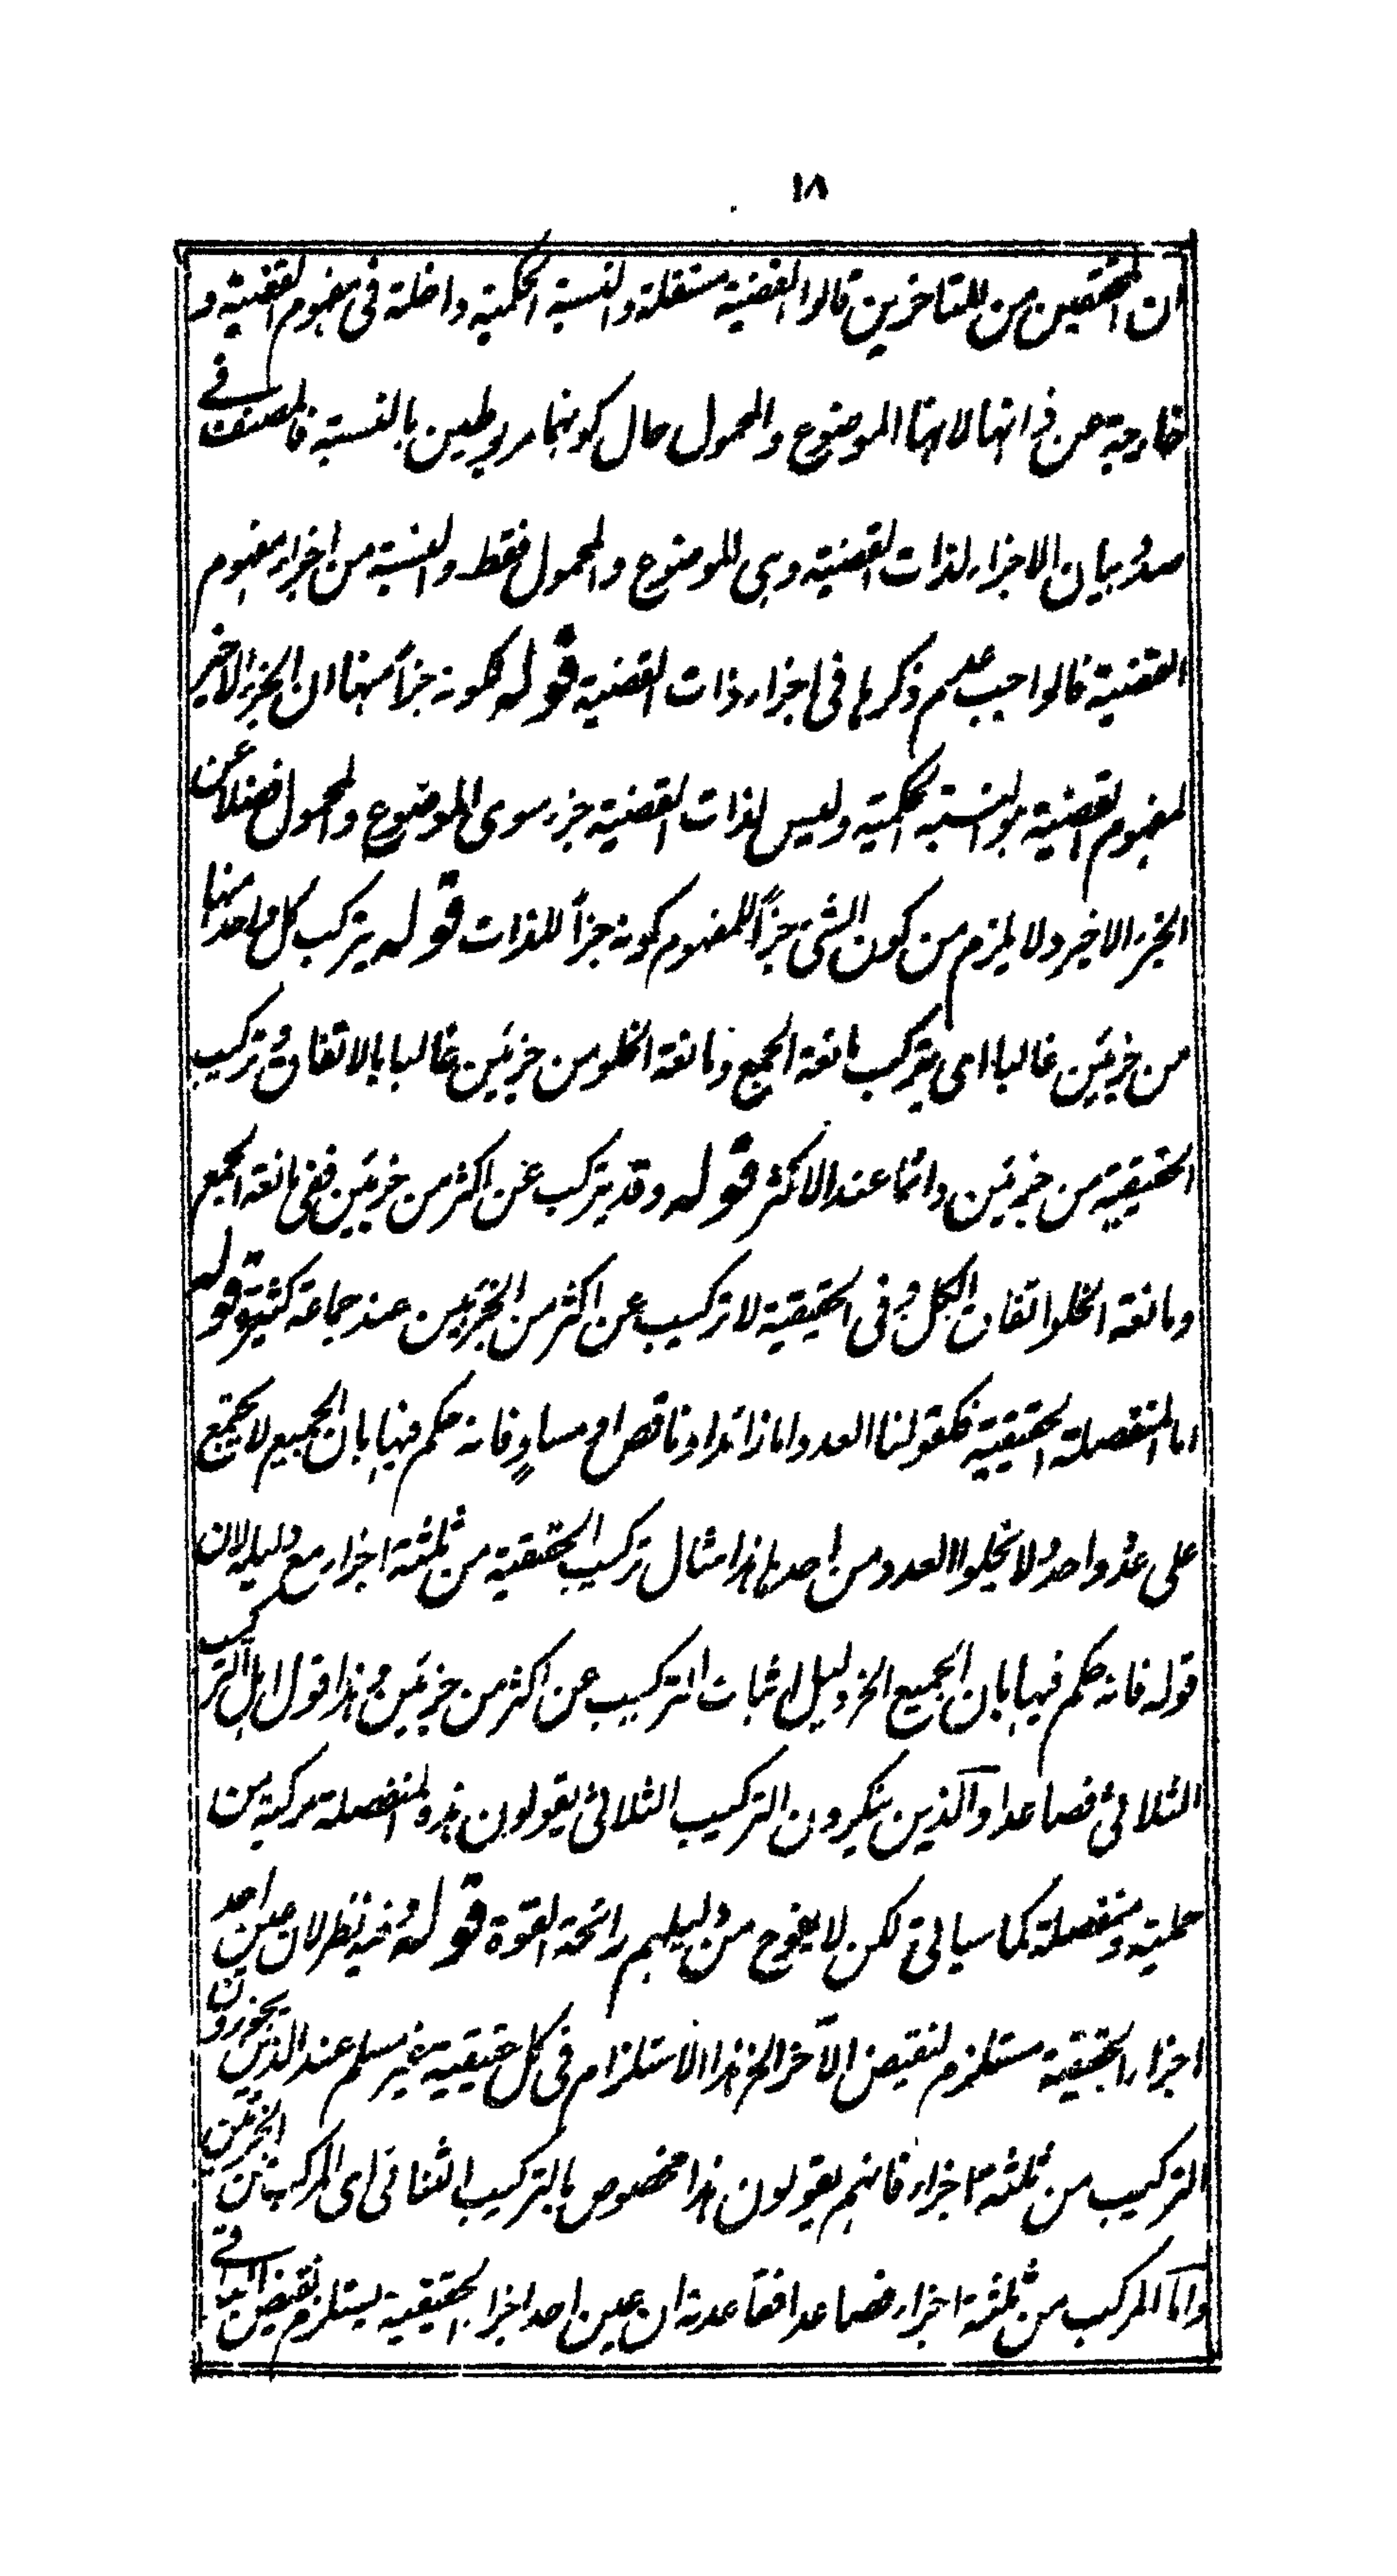 ١٨
ان المحققين من المتاخرين قالوا القضية مستقلة والنسبة الحكمية داخلة فى مفهوم القضية و
خارجة عن ذاتها لانها الموضوع والمحمول حال كونهما مربوطين بالنسبة فالمصنف فے
صدد بيان الاجزاء لذات القضية وهى الموضوع والمحمول فقط والنسبة من اجزاء مفهوم
القضية فالواجب عدم ذكرها فى اجزاء ذات القضية قوله لكونه جزأ منها ان الجزء الاخير
لمفهوم القضية هو النسبة الحكمية وليس لذات القضية جزء سوى الموضوع والمحمول فضلا عن
الجزء الاخير ولا يلزم من كون الشئ جزأ للمفهوم كونه جزأ للذات قوله يتركب كل واحد منهما
من جزئين غالبا اى يتركب مانعة الجمع ومانعة الخلو من جزئين غالبا بالاتفاق و تركيب
الحقيقية من جزئين دائما عند الاكثر قوله وقد يتركب عن اكثر من جزئين ففى مانعة الجمع
ومانعة الخلو اتفاق الكل و فى الحقيقية لا تركيب عن اكثر من الجزئين عند جماعة كثيرة قوله
اما المنفصلة الحقيقية فكقولنا العدد اما زائد او ناقص او مساوٍ فانه حكم فيها بان الجميع لا يجتمع
على عدد واحد ولا يخلوا العدد من احدها هذا مثال تركيب الحقيقية من ثلثة اجزاء مع دليله لان
قوله فانه حكم فيها بان الجميع الخ دليل لاثبات التركيب عن اكثر من جزئين و هذا قول اهل التركيب
الثلاثى فصاعدا والذين ينكرون التركيب الثلاثى يقولون هذه المنفصلة مركبة من
حملية ومنفصلة كما سياتى لكن لا يفوح من دليلهم رائحة القوة قوله وفيه نظر لان عين احد
اجزاء الحقيقية مستلزم لنقيض الآخر الخ هذا الاستلزام فى كل حقيقية غير مسلم عند الذين يجوزون
التركيب من ثلثة اجزاء فانهم يقولون هذا مخصوص بالتركيب الثنائى اى المركب من الجزئين
واما المركب من ثلثة اجزاء فصاعدا فقاعدته ان عين احد اجزاء الحقيقية يستلزم نقيض الباقے